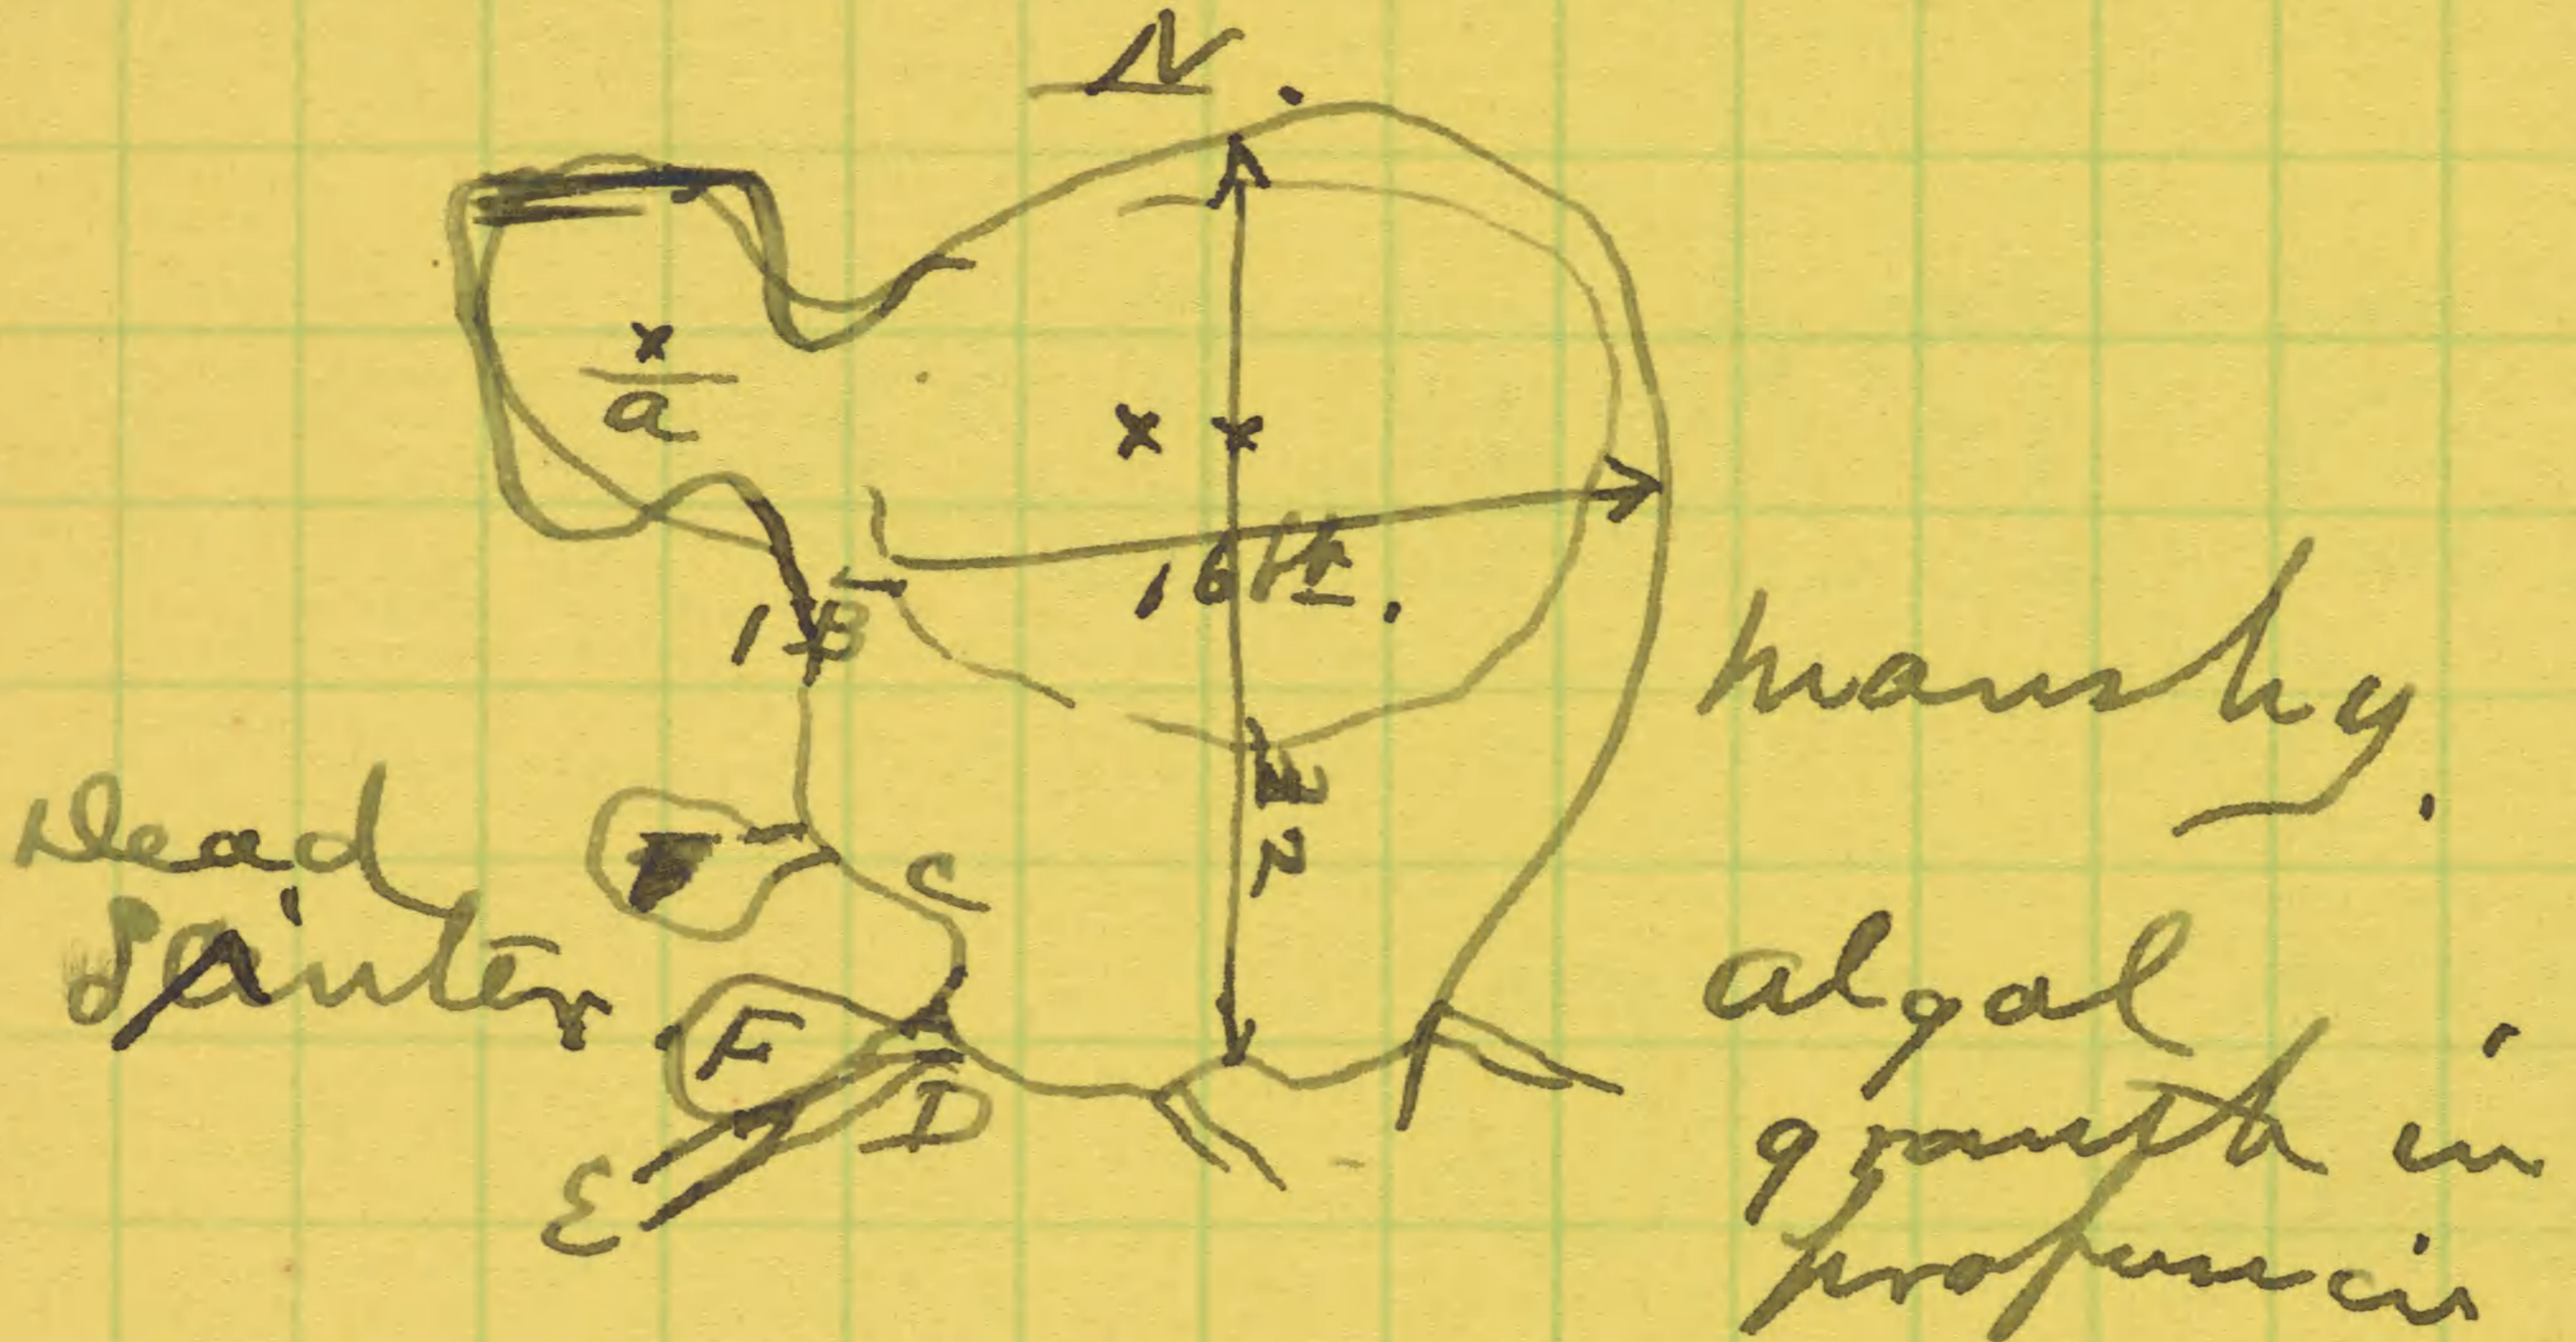 N.
x
a
x x
16 ft.
B
marshy.
Dead
Sinter
F
C
F
D
E
algal
growth in